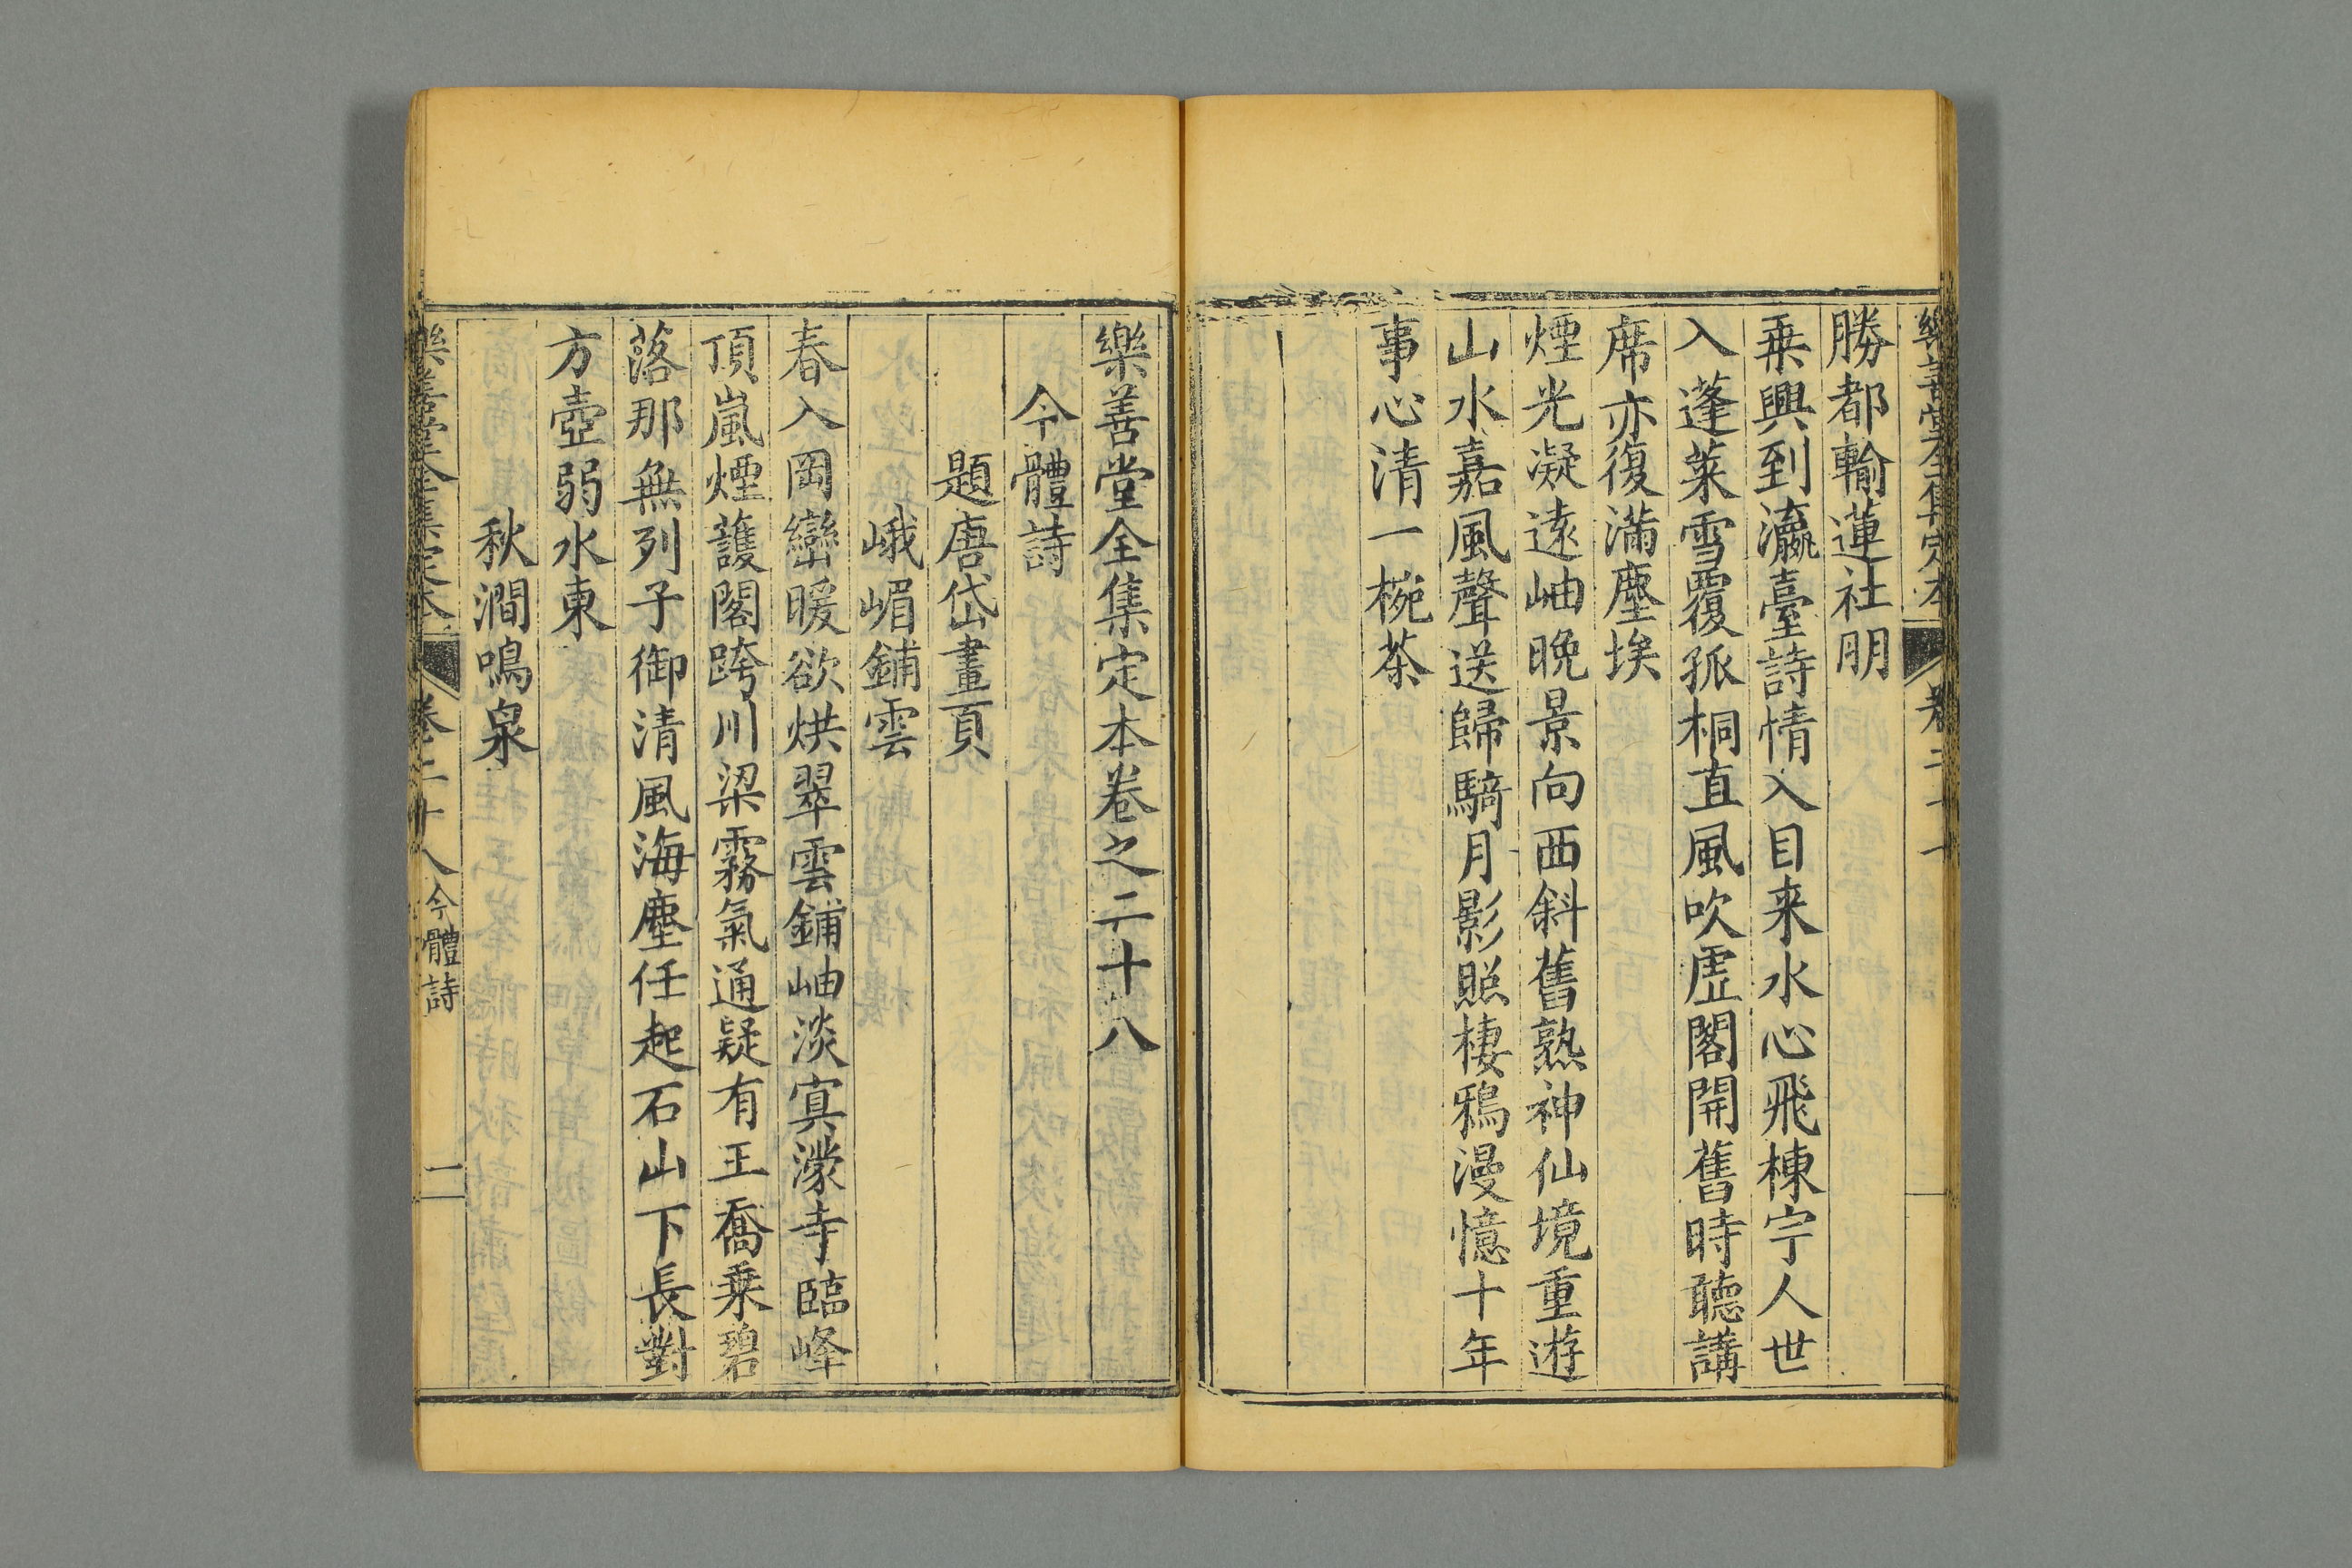 勝都輸蓮社朋
乗興到瀛臺詩情入目来水心飛棟宇人世
入蓬萊雪覆孤桐直風吹虛閣開舊時聽講
席亦復滿塵埃
煙光凝遠岫晚景向西斜舊熟神仙境重遊
山水嘉風聲送歸騎月影照棲鴉漫憶十年
事心清一椀茶
樂善堂全集定本卷之二十八
今體詩
題唐岱畫頁
峨嵋鋪雲
春入岡巒暖欲烘翠雲鋪岫淡寘濛寺臨峰
頂嵐煙護閣跨川梁霧氣通疑有王喬乗碧
落那無列子御清風海塵任起石山下長對
方壺弱水東
秋澗鳴泉
樂善堂全集定本 卷二十八 今體詩 一